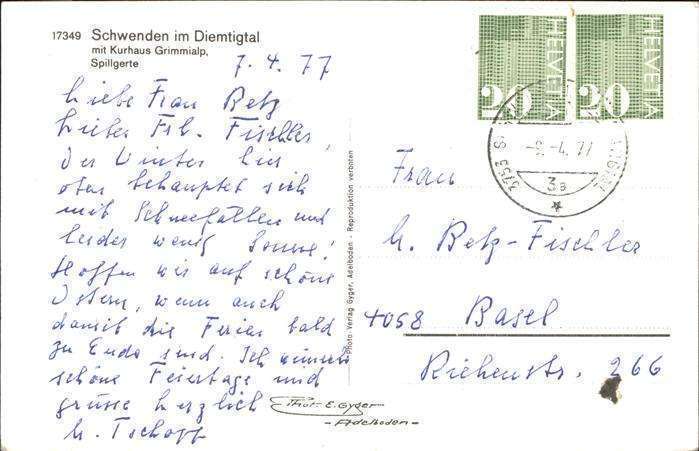 17349 Schwenden im Diemtigtal
mit Kurhaus Grimmialp,
Spillgerte
7.4.77
Liebe Frau Betz
Lieber Frl. Fischler,
Der Winter hier
oben behauptet sich
mit Schneefällen und
leider wenig Sonne!
Hoffen wir auf schöne
Ostern, wenn auch
damit die Ferien bald
zu Ende sind. Ich wünsche
schöne Feiertage und
grüsse herzlich
H. Tschopp
Photo Verlag Gyger, Adelboden - Reproduktion verboten
Phot. E. Gyger
- Adelboden -
HELVETIA
20
HELVETIA
20
3753
-8.-4.77
3a
Frau
H. Betz-Fischler
4058 Basel
Riehenstr. 266